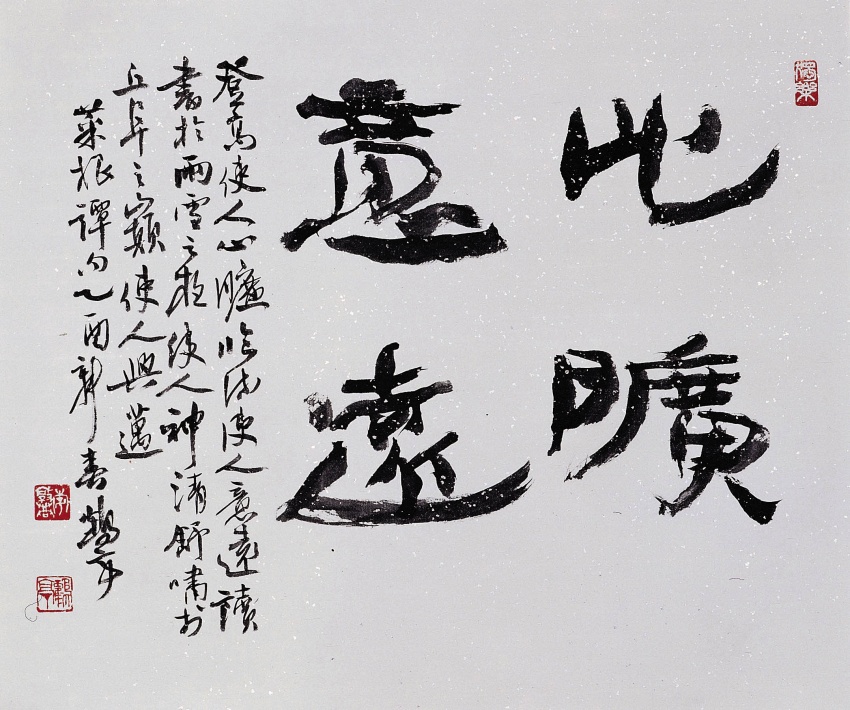 心曠
意遠
登高使人心曠臨流使人意遠讀
書於雨雪之夜使人神清舒嘯於
丘阜之巔使人興邁
菜根譚句乙酉新春鶴年